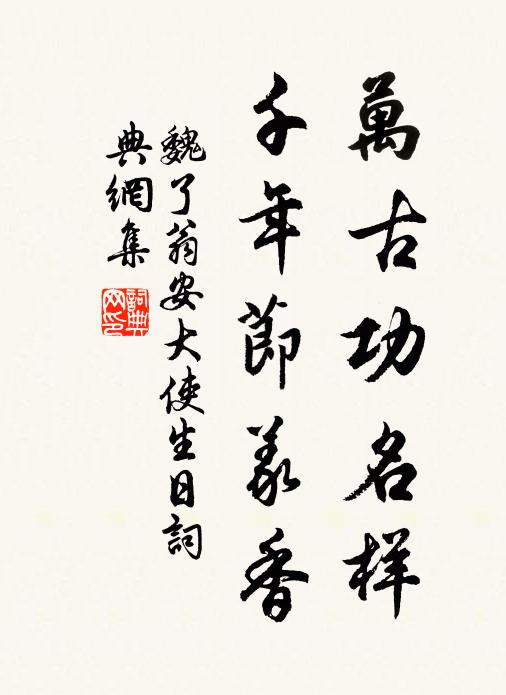 萬古功名样
千年節義香
魏了翁安大使生日詞
典網集
詞典網印